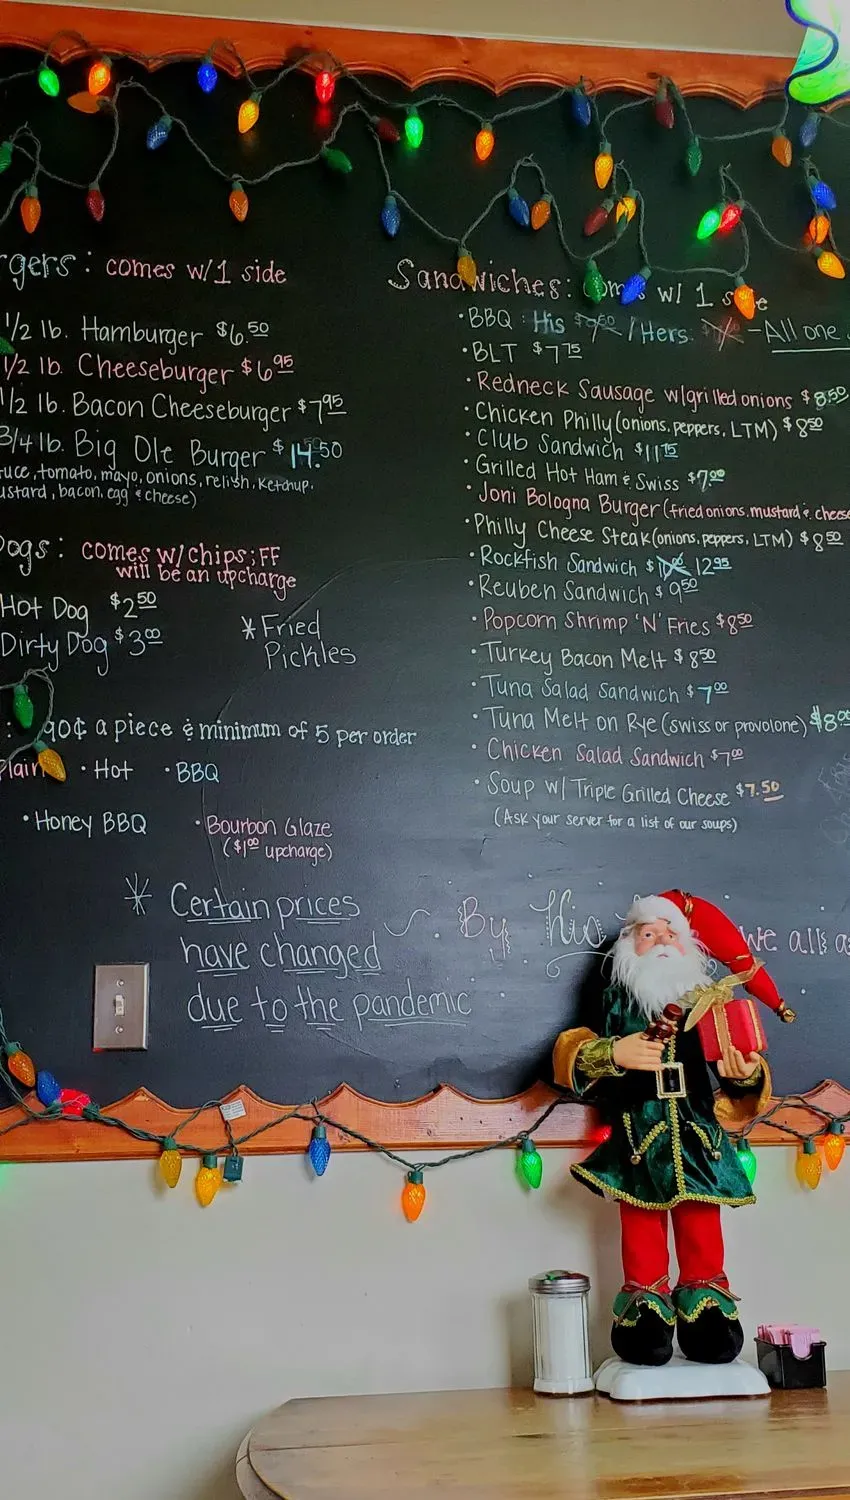 rgers: comes w/1 side
1/2 lb. Hamburger $6.50
1/2 lb. Cheeseburger $6.95
1/2 lb. Bacon Cheeseburger $7.95
3/4 lb. Big Ole Burger $14.50
uce, tomato, mayo, onions, relish, Ketchup,
ustard, bacon, egg & cheese)
Dogs: comes w/chips; FF
will be an upcharge
Hot Dog $2.50
Dirty Dog $3.00
* Fried
Pickles
: 90¢ a piece & minimum of 5 per order
Plain • Hot • BBQ
• Honey BBQ • Bourbon Glaze
($1.00 upcharge)
Sandwiches: comes w/ 1 side
• BBQ: His / Hers: - All one
• BLT $7.75
• Redneck Sausage w/grilled onions $8.50
• Chicken Philly (onions, peppers, LTM) $8.50
• Club Sandwich $11.75
• Grilled Hot Ham & Swiss $7.00
• Joni Bologna Burger (fried onions, mustard & cheese
• Philly Cheese Steak (onions, peppers, LTM) $8.50
• Rockfish Sandwich $ 12.95
• Reuben Sandwich $9.50
• Popcorn Shrimp 'N' Fries $8.50
• Turkey Bacon Melt $8.50
• Tuna Salad Sandwich $7.00
• Tuna Melt on Rye (swiss or provolone) $8.00
• Chicken Salad Sandwich $7.00
• Soup w/ Triple Grilled Cheese $7.50
(Ask your server for a list of our soups)
* Certain prices
have changed
due to the pandemic
By His we all a